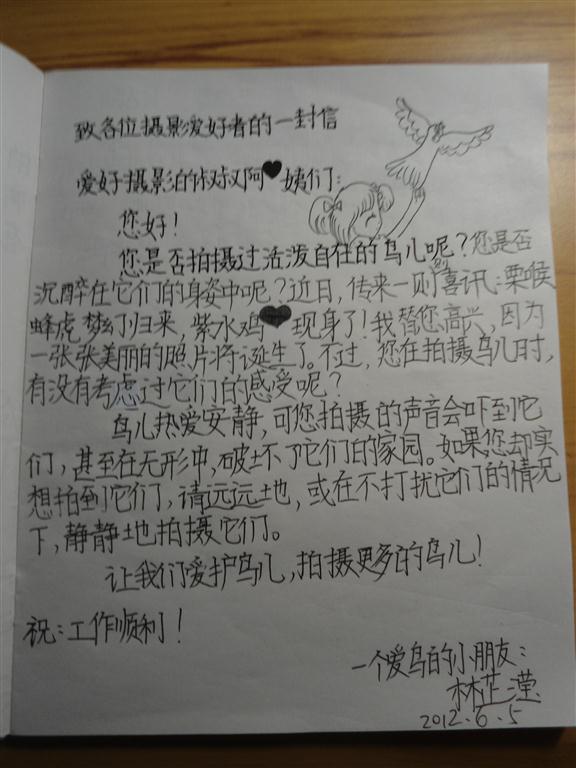 致各位摄影爱好者的一封信
爱好摄影的叔叔阿♥姨们：
您好！
您是否拍摄过活泼自在的鸟儿呢？您是否
沉醉在它们的身姿中呢？近日，传来一则喜讯：栗喉
蜂虎梦幻归来，紫水鸡♥现身了！我替您高兴，因为
一张张美丽的照片将诞生了。不过，您在拍摄鸟儿时，
有没有考虑过它们的感受呢？
鸟儿热爱安静，可您拍摄的声音会吓到它
们，甚至在无形中，破坏了它们的家园。如果您却实
想拍到它们，请远远地，或在不打扰它们的情况
下，静静地拍摄它们。
让我们爱护鸟儿，拍摄更多的鸟儿！
祝：工作顺利！
一个爱鸟的小朋友：
林芷滢
2012.6.5